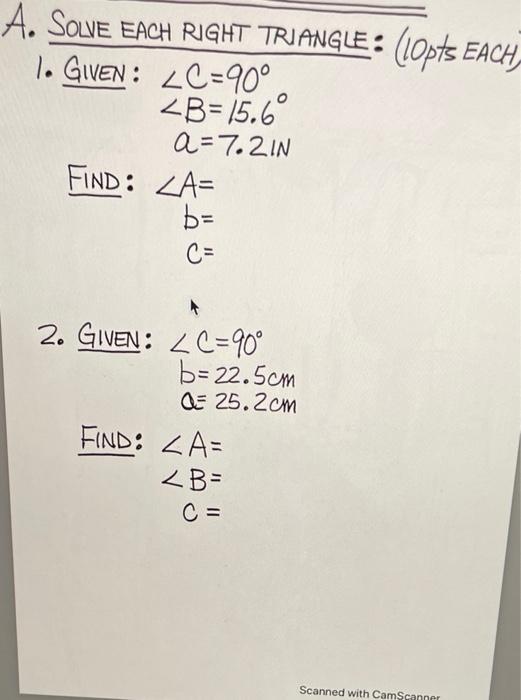 A. SOLVE EACH RIGHT TRIANGLE: (10pts EACH)
1. GIVEN: ∠C=90°
∠B=15.6°
a=7.2IN
FIND: ∠A=
b=
C=
2. GIVEN: ∠C=90°
b=22.5cm
a=25.2cm
FIND: ∠A=
∠B=
C=
Scanned with CamScanner